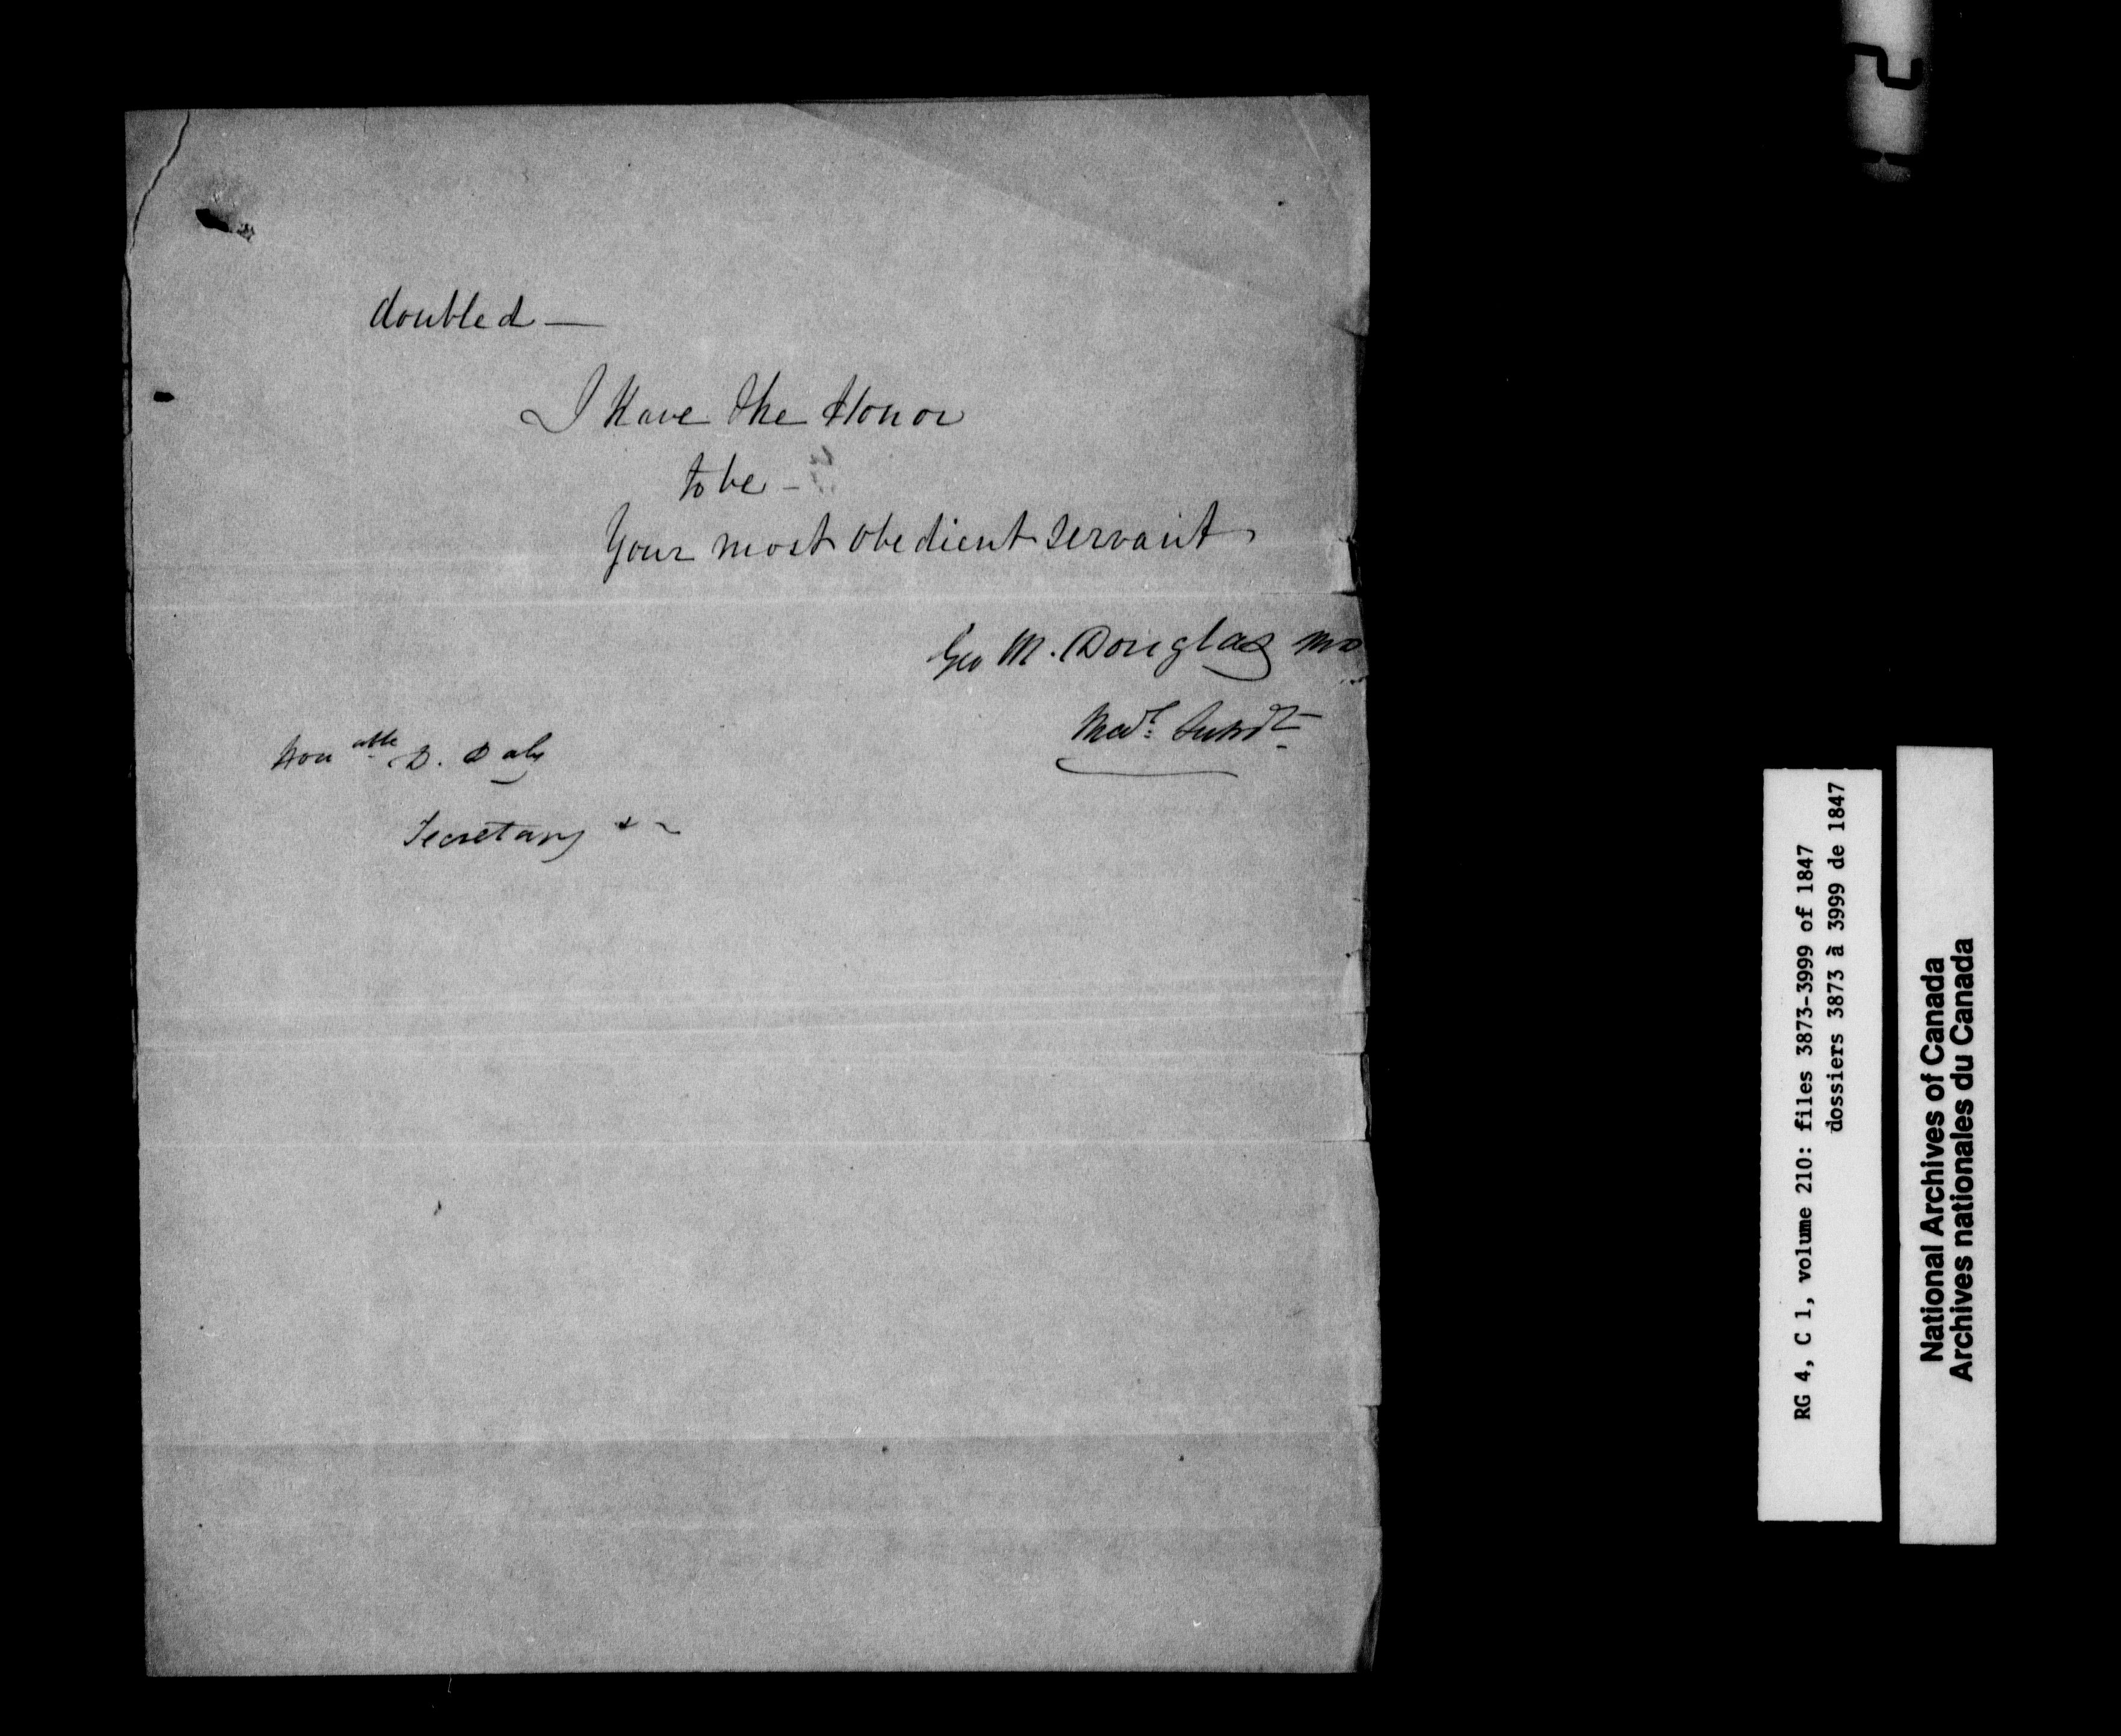 doubled —
I have the Honor
to be —
Your most obedient servant
Geo M. Douglas MD
Medl. Supdt.
Honable D. Daly
Secretary
RG 4, C 1, volume 210: files 3873-3999 of 1847
dossiers 3873 à 3999 de 1847
National Archives of Canada
Archives nationales du Canada